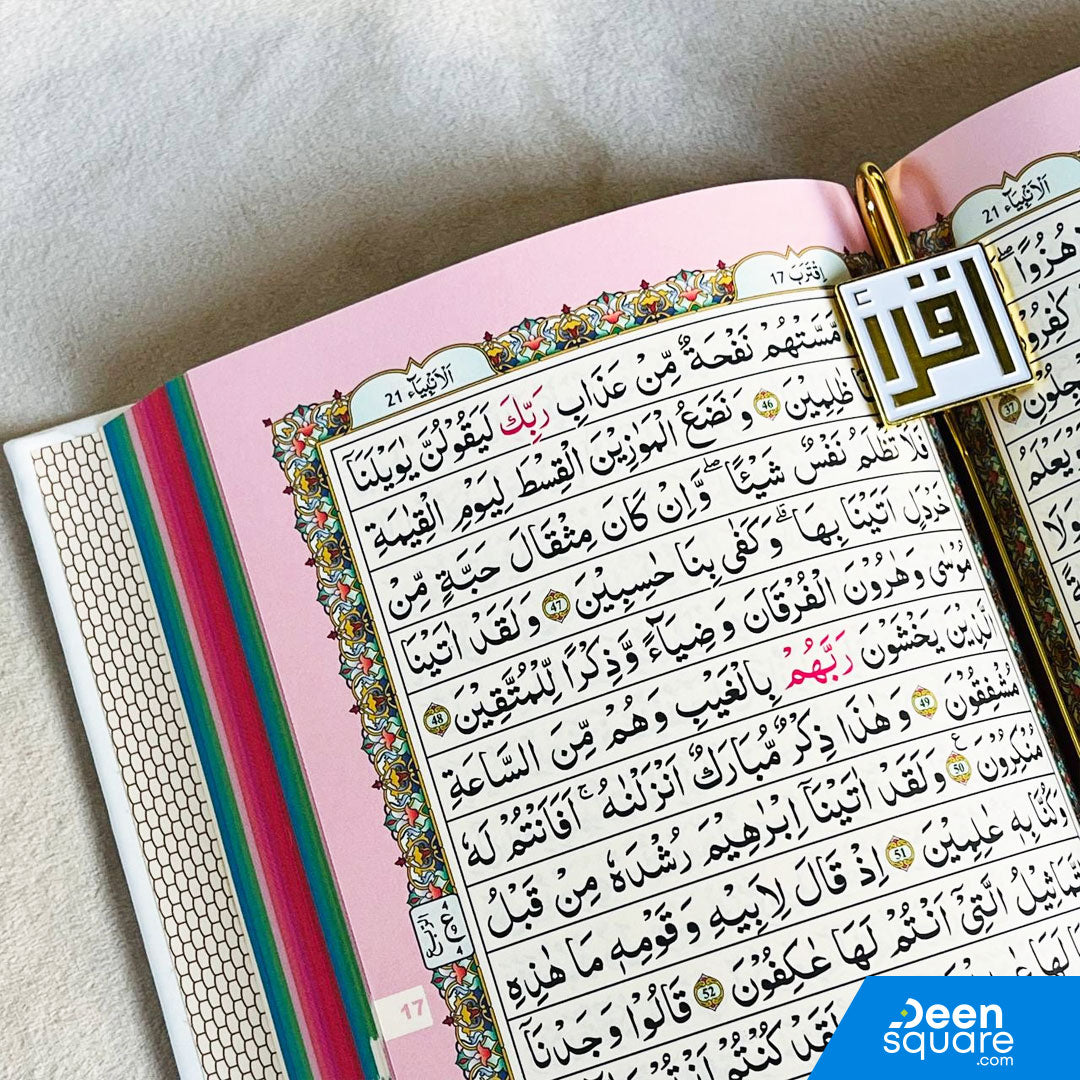 اَلْاَنْۢبِيَآء 21
اِقْتَرَبَ 17
اَلْاَنْۢبِيَآء 21
اقرأ
مَّسَّتْهُمْ نَفْحَةٌ مِّنْ عَذَابِ رَبِّكَ لَيَقُوْلُنَّ يٰوَيْلَنَآ
ظٰلِمِيْنَ 46 وَنَضَعُ الْمَوَازِيْنَ الْقِسْطَ لِيَوْمِ الْقِيٰمَةِ
فَلَا تُظْلَمُ نَفْسٌ شَيْـًٔا ؕ وَاِنْ كَانَ مِثْقَالَ حَبَّةٍ مِّنْ
خَرْدَلٍ اَتَيْنَا بِهَا ؕ وَكَفٰى بِنَا حٰسِبِيْنَ 47 وَلَقَدْ اٰتَيْنَا
مُوْسٰى وَهٰرُوْنَ الْفُرْقَانَ وَضِيَآءً وَّذِكْرًا لِّلْمُتَّقِيْنَ 48
الَّذِيْنَ يَخْشَوْنَ رَبَّهُمْ بِالْغَيْبِ وَهُمْ مِّنَ السَّاعَةِ
مُشْفِقُوْنَ 49 وَهٰذَا ذِكْرٌ مُّبٰرَكٌ اَنْزَلْنٰهُ ؕ اَفَاَنْتُمْ لَهٗ
مُنْكِرُوْنَ 50 وَلَقَدْ اٰتَيْنَآ اِبْرٰهِيْمَ رُشْدَهٗ مِنْ قَبْلُ
وَكُنَّا بِهٖ عٰلِمِيْنَ 51 اِذْ قَالَ لِاَبِيْهِ وَقَوْمِهٖ مَا هٰذِهِ
التَّمَاثِيْلُ الَّتِيْٓ اَنْتُمْ لَهَا عٰكِفُوْنَ 52 قَالُوْا وَجَدْنَآ
لَهَا
لَقَدْ كُنْتُمْ اَنْتُمْ
17
هُزُوًا
كٰفِرُوْنَ
37
وَلَا
Deen
square
.com